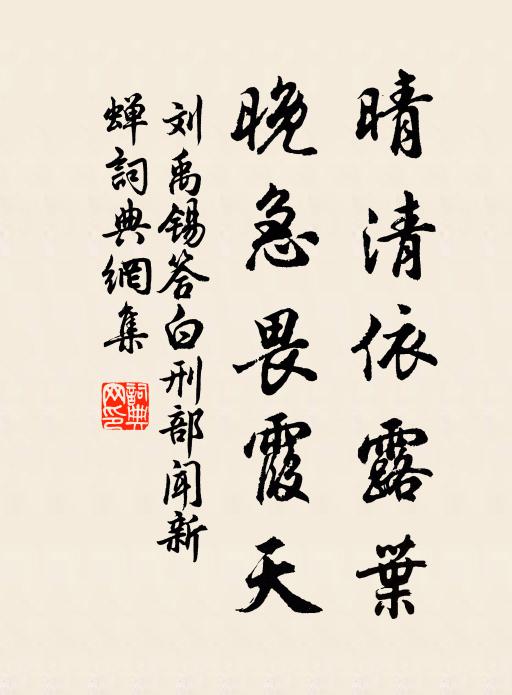 晴清依露葉
晚急畏霞天
刘禹锡答白刑部闻新
蝉詞典網集
詞典網印